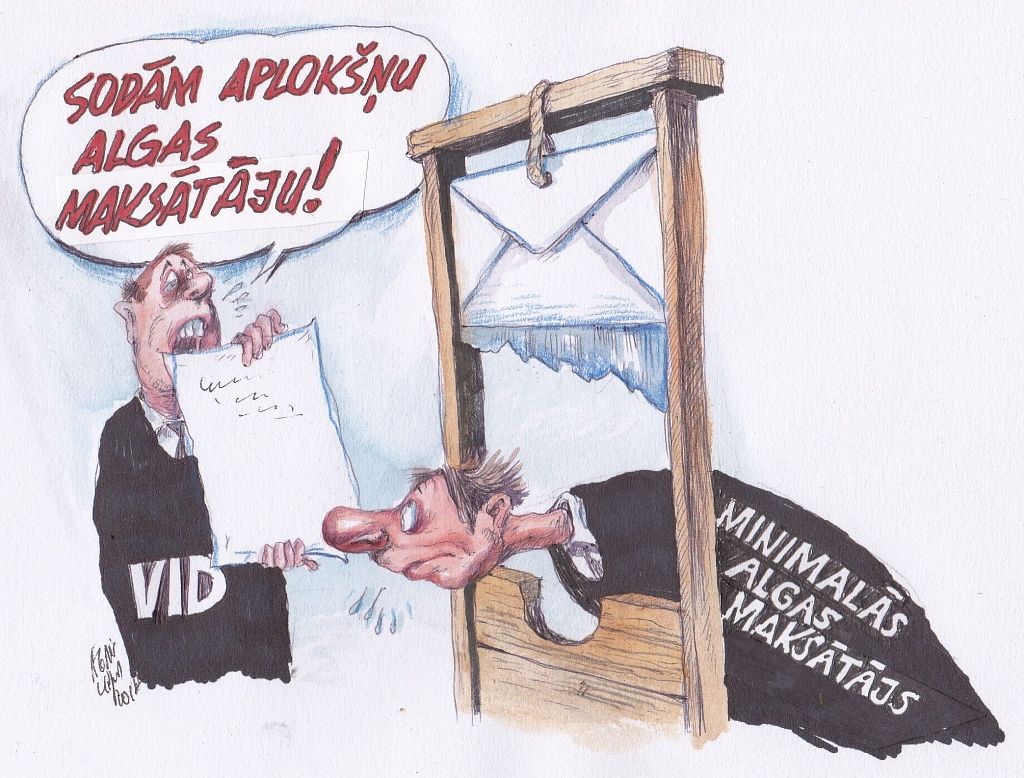 SODĀM APLOKŠŅU
ALGAS
MAKSĀTĀJU!
VID
MINIMALĀS
ALGAS
MAKSĀTĀJS